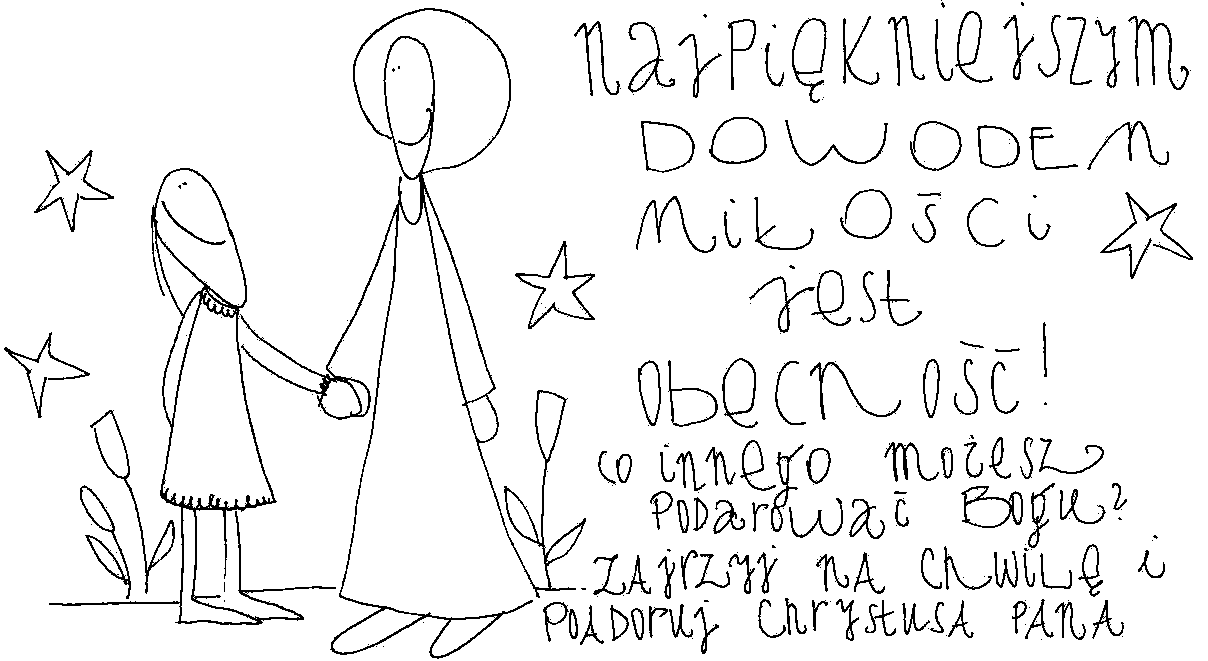 najpiękniejszym
DOWODEM
miłości
jest
obecność!
co innego możesz
podarować Bogu?
zajrzyj na chwilę i
poadoruj Chrystusa Pana